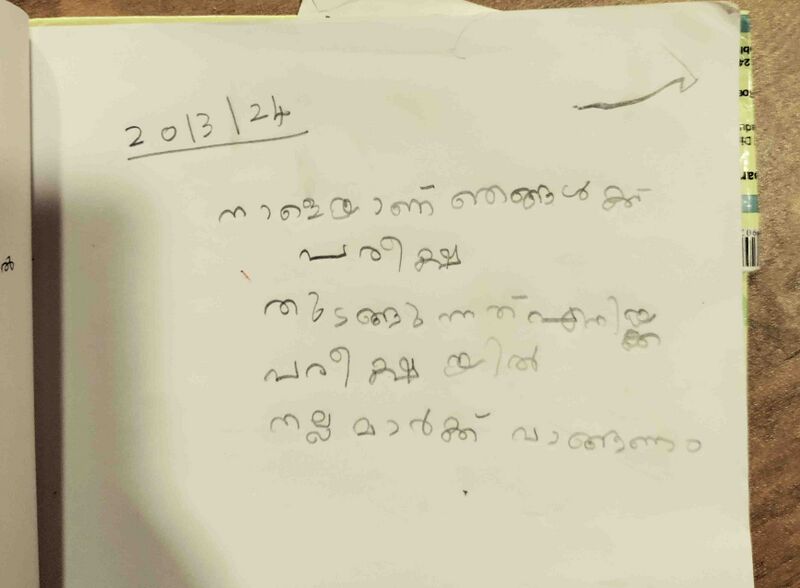 20/3/24
നാളെയാണ് ഞങ്ങൾക്ക്
പരീക്ഷ
തുടങ്ങുന്നത് എനിയ്ക്ക
പരീക്ഷയിൽ
നല്ല മാർക്ക് വാങ്ങണം